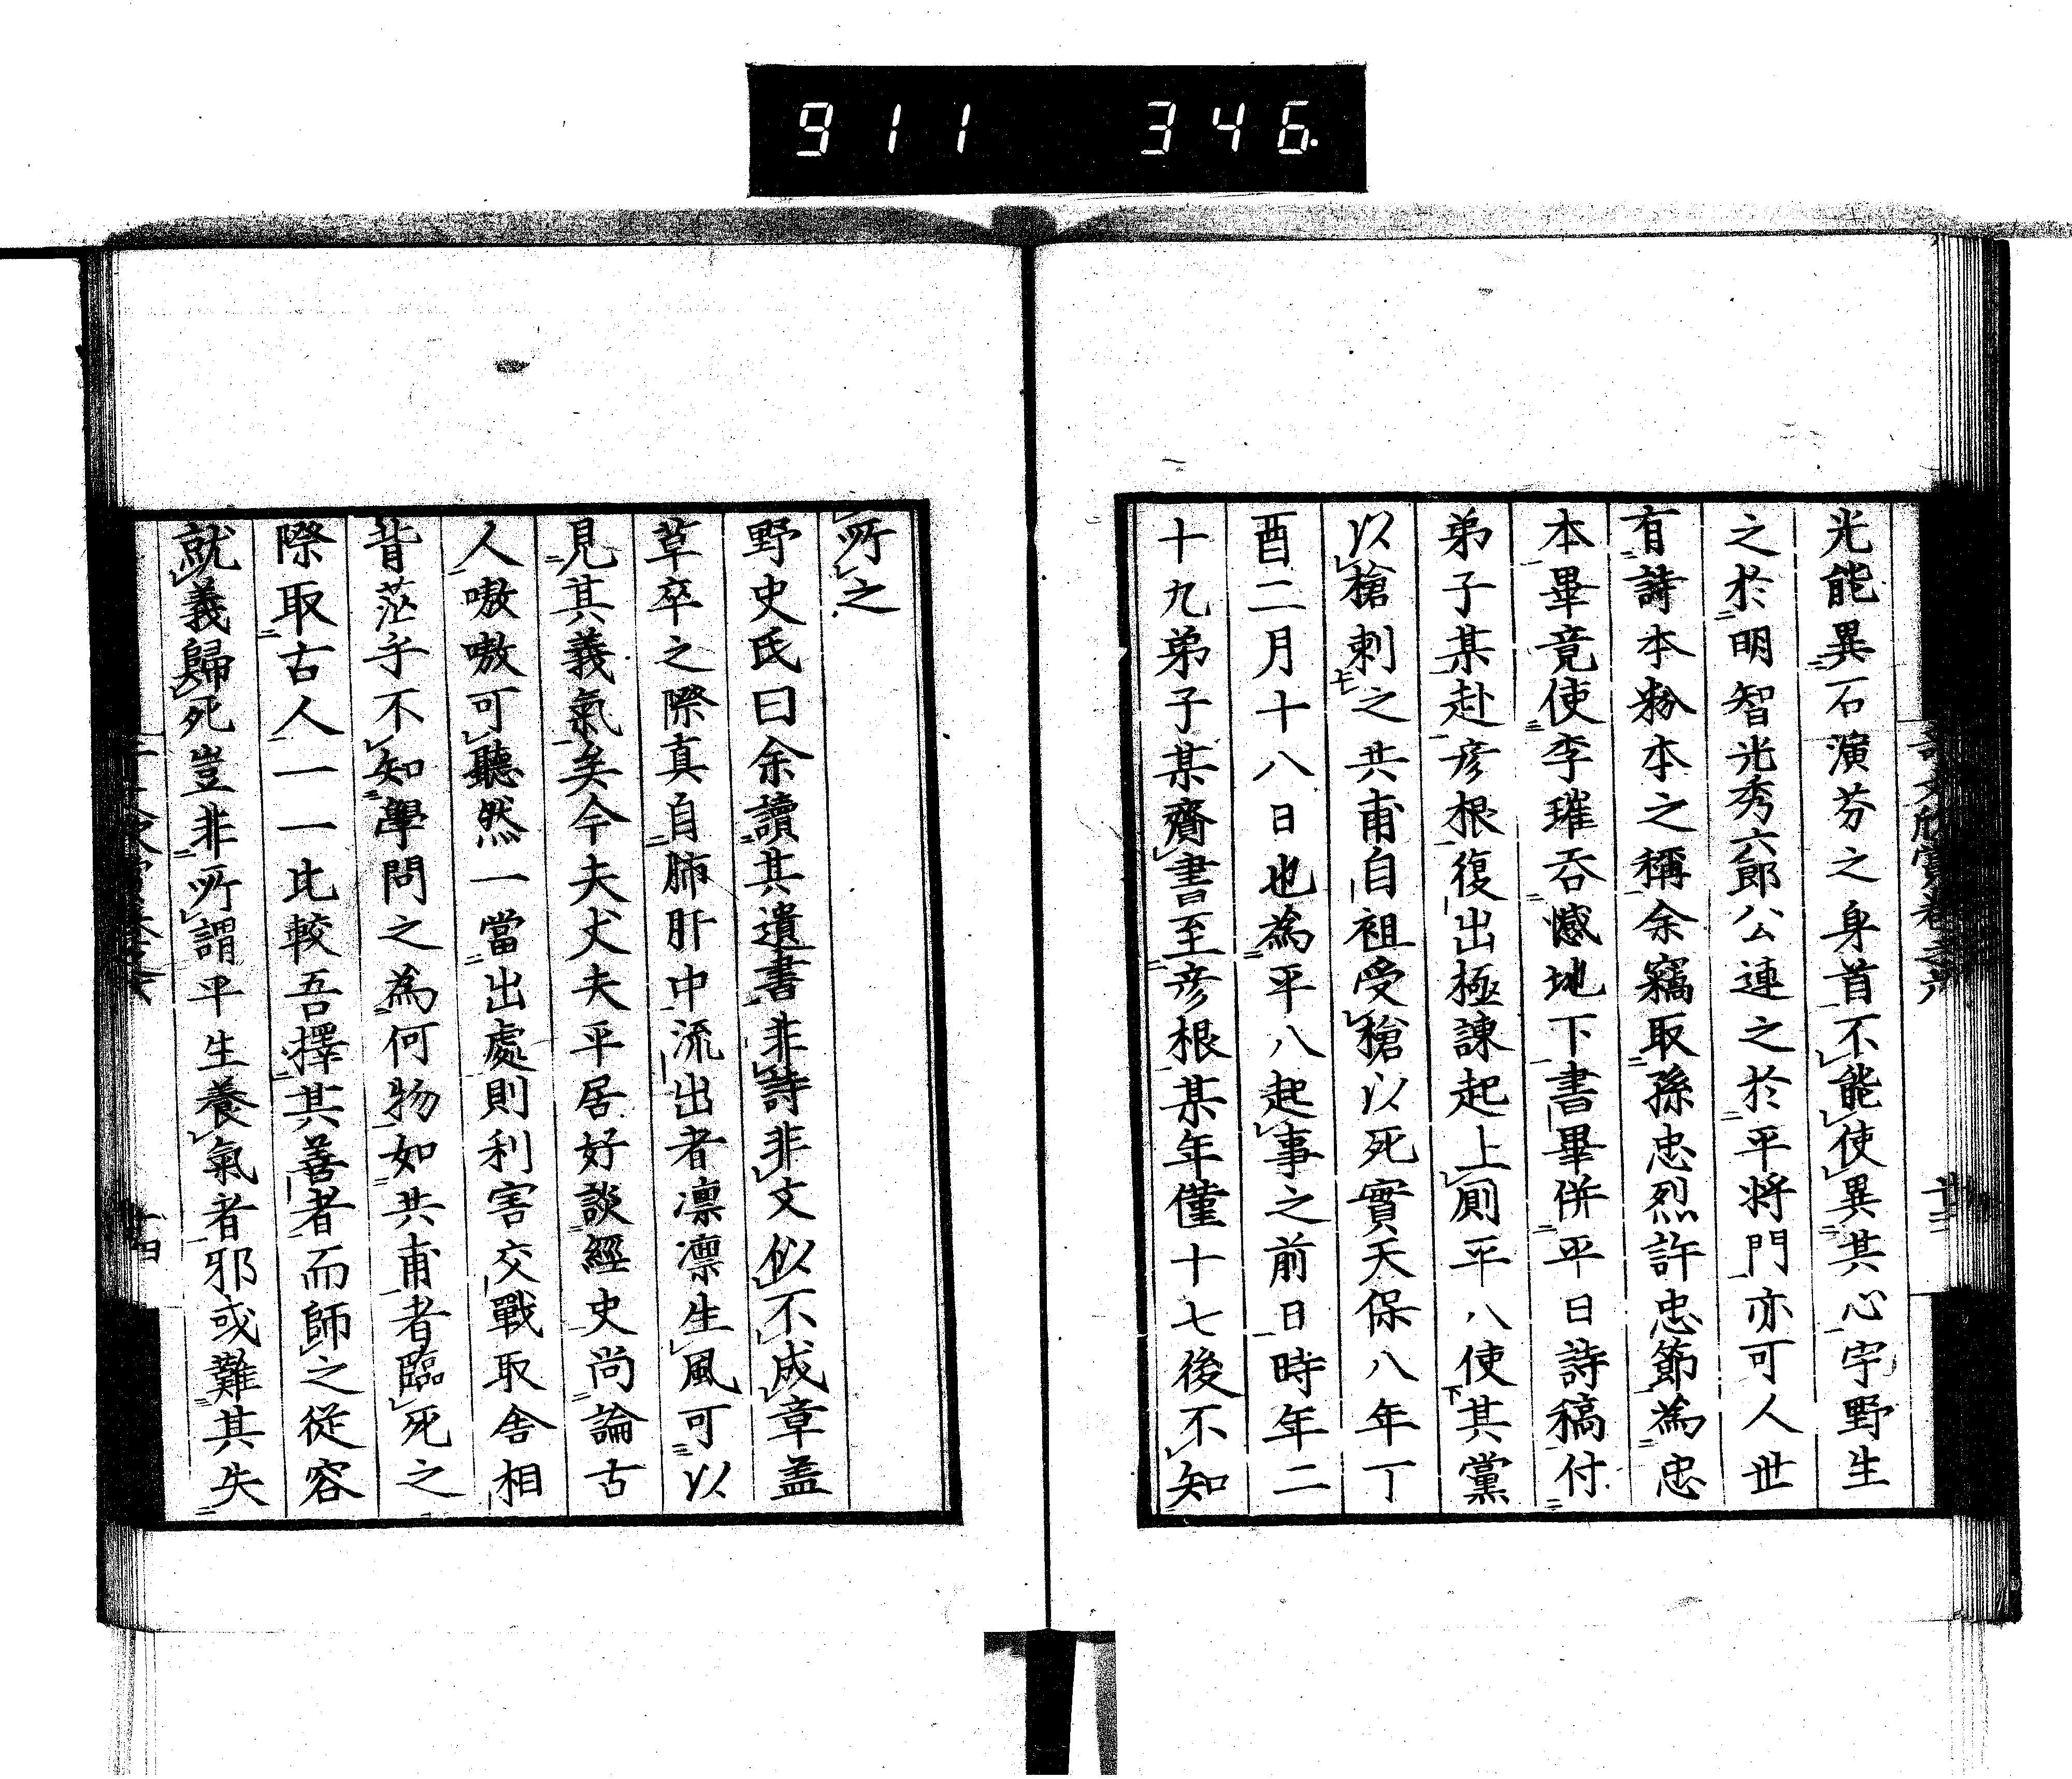 911 346.
光能異石演芬之身首不能使異其心宇野生
之於明智光秀六郎公連之於平将門亦可人世
有詩本粉本之稱余竊取孫忠烈許忠節為忠
本畢竟使李璀吞憾地下書畢併平日詩稿付
弟子某赴彦根復出極諫起上厠平八使其黨
以槍刺之共甫自袒受槍以死實天保八年丁
酉二月十八日也為平八起事之前日時年二
十九弟子某齎書至彦根某年僅十七後不知
所之
野史氏曰余讀其遺書非詩非文似不成章盖
草卒之際真自肺肝中流出者凛凛生風可以
見其義氣矣今夫丈夫平居好談經史尚論古
人嗷嗷可聽然一當出處則利害交戰取舎相
背茫乎不知學問之為何物如共甫者臨死之
際取古人一一比較吾擇其善者而師之從容
就義歸死豈非所謂平生養氣者邪或難其失